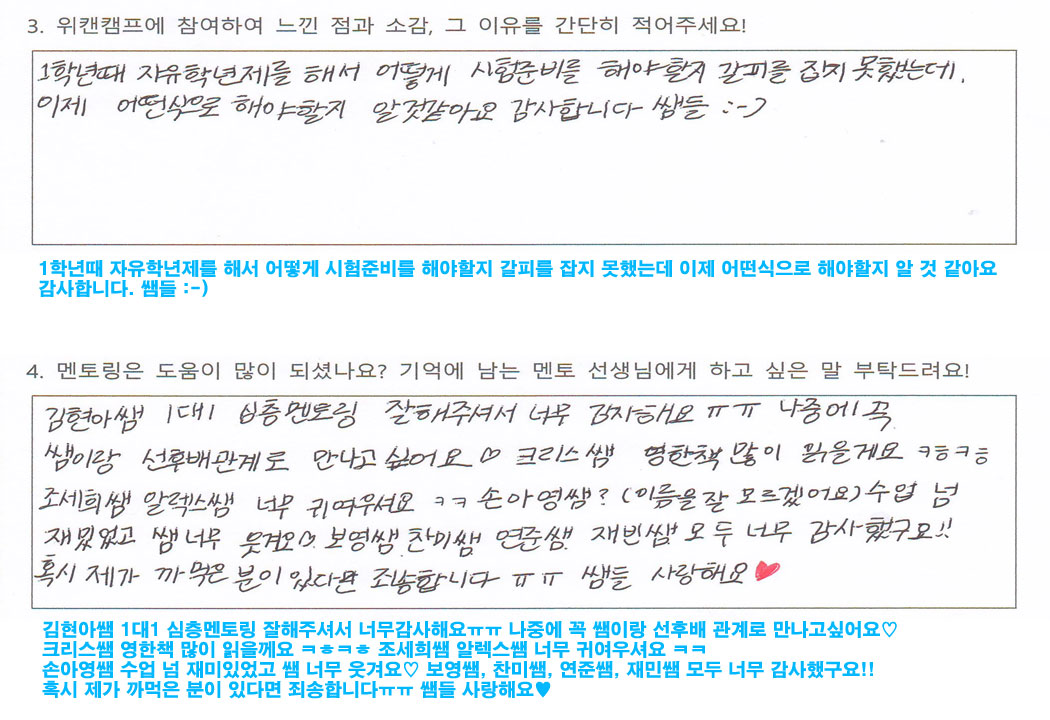 3. 위캔캠프에 참여하여 느낀 점과 소감, 그 이유를 간단히 적어주세요!
1학년때 자유학년제를 해서 어떻게 시험준비를 해야할지 갈피를 잡지 못했는데,
이제 어떤식으로 해야할지 알것같아요 감사합니다 쌤들 :-)
1학년때 자유학년제를 해서 어떻게 시험준비를 해야할지 갈피를 잡지 못했는데 이제 어떤식으로 해야할지 알 것 같아요
감사합니다. 쌤들 :-)
4. 멘토링은 도움이 많이 되셨나요? 기억에 남는 멘토 선생님에게 하고 싶은 말 부탁드려요!
김현아쌤 1대1 심층멘토링 잘해주셔서 너무 감사해요 ㅠㅠ 나중에 꼭
쌤이랑 선후배관계로 만나고 싶어요♡ 크리스쌤 영한책 많이 읽을게요 ㅋㅎㅋㅎ
조세희쌤 알렉스쌤 너무 귀여우셔요 ㅋㅋ 손아영쌤? (이름을 잘 모르겠어요) 수업 넘
재밌었고 쌤 너무 웃겨요♡ 보영쌤, 찬미쌤, 연준쌤, 재빈쌤 모두 너무 감사했구요!!
혹시 제가 까먹은 분이 있다면 죄송합니다 ㅠㅠ 쌤들 사랑해요♥
김현아쌤 1대1 심층멘토링 잘해주셔서 너무감사해요ㅠㅠ 나중에 꼭 쌤이랑 선후배 관계로 만나고싶어요♡
크리스쌤 영한책 많이 읽을께요 ㅋㅎㅋㅎ 조세희쌤 알렉스쌤 너무 귀여우셔요 ㅋㅋ
손아영쌤 수업 넘 재미있었고 쌤 너무 웃겨요♡ 보영쌤, 찬미쌤, 연준쌤, 재민쌤 모두 너무 감사했구요!!
혹시 제가 까먹은 분이 있다면 죄송합니다ㅠㅠ 쌤들 사랑해요♥